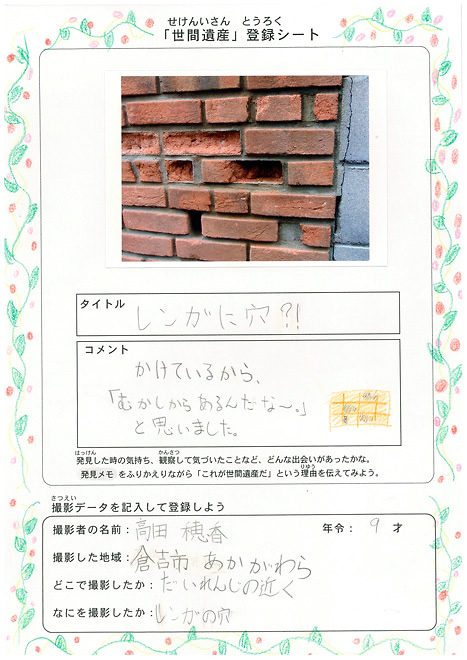 せけんいさん とうろく
「世間遺産」登録シート
タイトル
レンガに穴?!
コメント
かけているから、
「むかしからあるんだな〜。」
と思いました。
はっけん かんさつ
発見した時の気持ち、観察して気づいたことなど、どんな出会いがあったかな。
りゆう
発見メモ をふりかえりながら「これが世間遺産だ」という理由を伝えてみよう。
さつえい
撮影データを記入して登録しよう
撮影者の名前: 高田 穂香 年令: 9 才
撮影した地域: 倉吉市 あかがわら
どこで撮影したか: だいれんじの近く
なにを撮影したか: レンガの穴